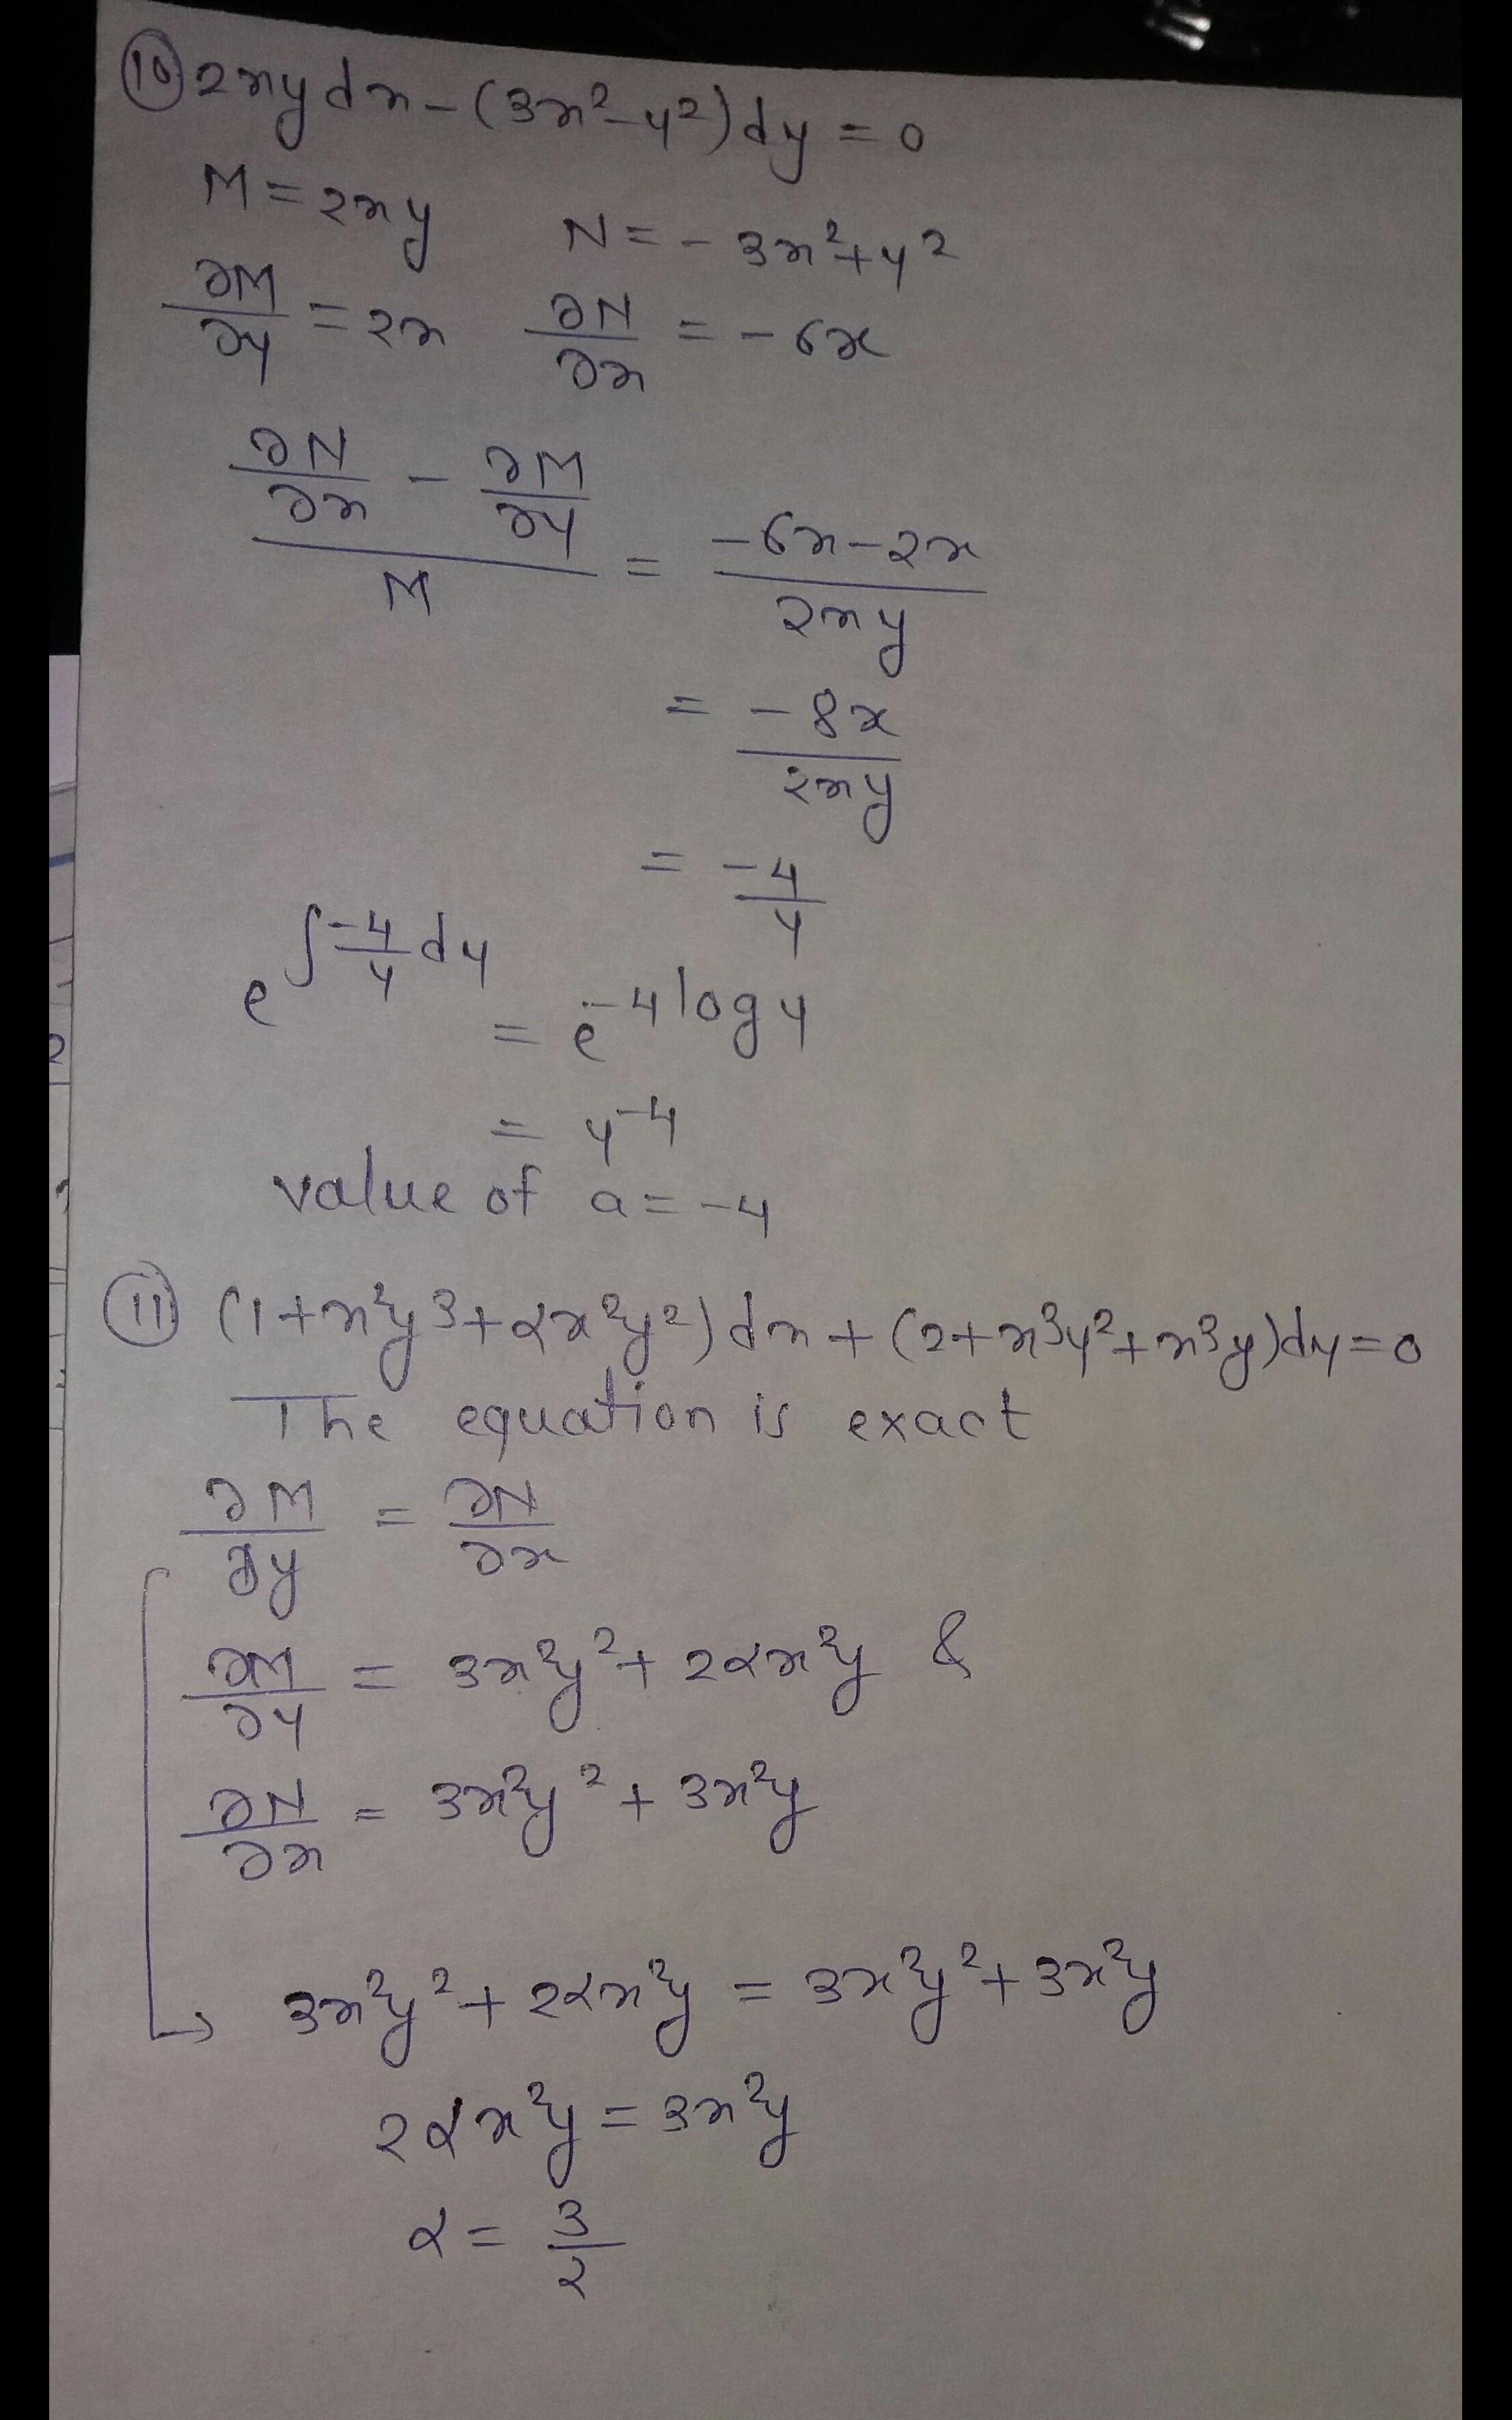 ⑩ 2xydx - (3x² - y²)dy = 0
M = 2xy N = - 3x² + y²
∂M/∂y = 2x ∂N/∂x = - 6x
(∂N/∂x - ∂M/∂y)/M = (-6x - 2x)/2xy
= -8x/2xy
= -4/y
e^∫-4/y dy = e^-4logy
= y^-4
value of a = -4
⑪ (1+x²y³+αx²y²)dx + (2+x³y²+x³y)dy = 0
The equation is exact
∂M/∂y = ∂N/∂x
∂M/∂y = 3x²y² + 2αx²y &
∂N/∂x = 3x²y² + 3x²y
3x²y² + 2αx²y = 3x²y² + 3x²y
2αx²y = 3x²y
α = 3/2